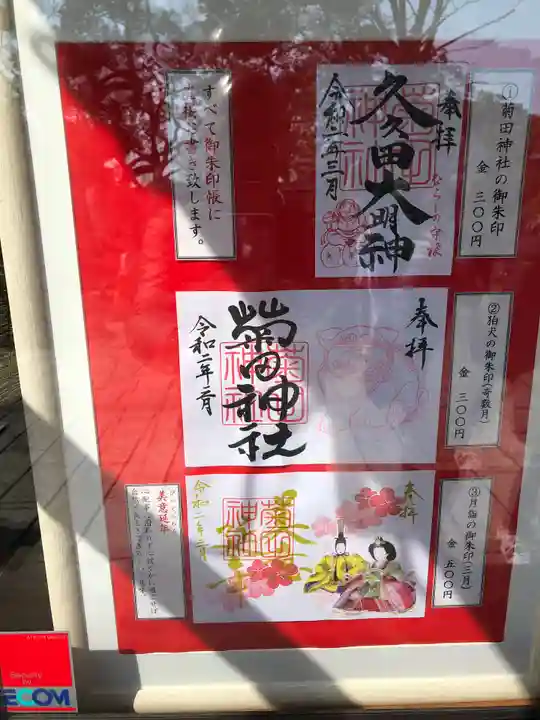 ①菊田神社の御朱印
金 三〇〇円
奉拝
久々田大明神
令和二年三月
菊田
神社
すべて御朱印帳に
直接お書き致します。
②狛犬の御朱印(奇数月)
金 三〇〇円
奉拝
菊田神社
菊田
神社
令和二年二月
③月替の御朱印(三月)
金 五〇〇円
奉拝
菊田
神社
美意延年
Security
by
SECOM